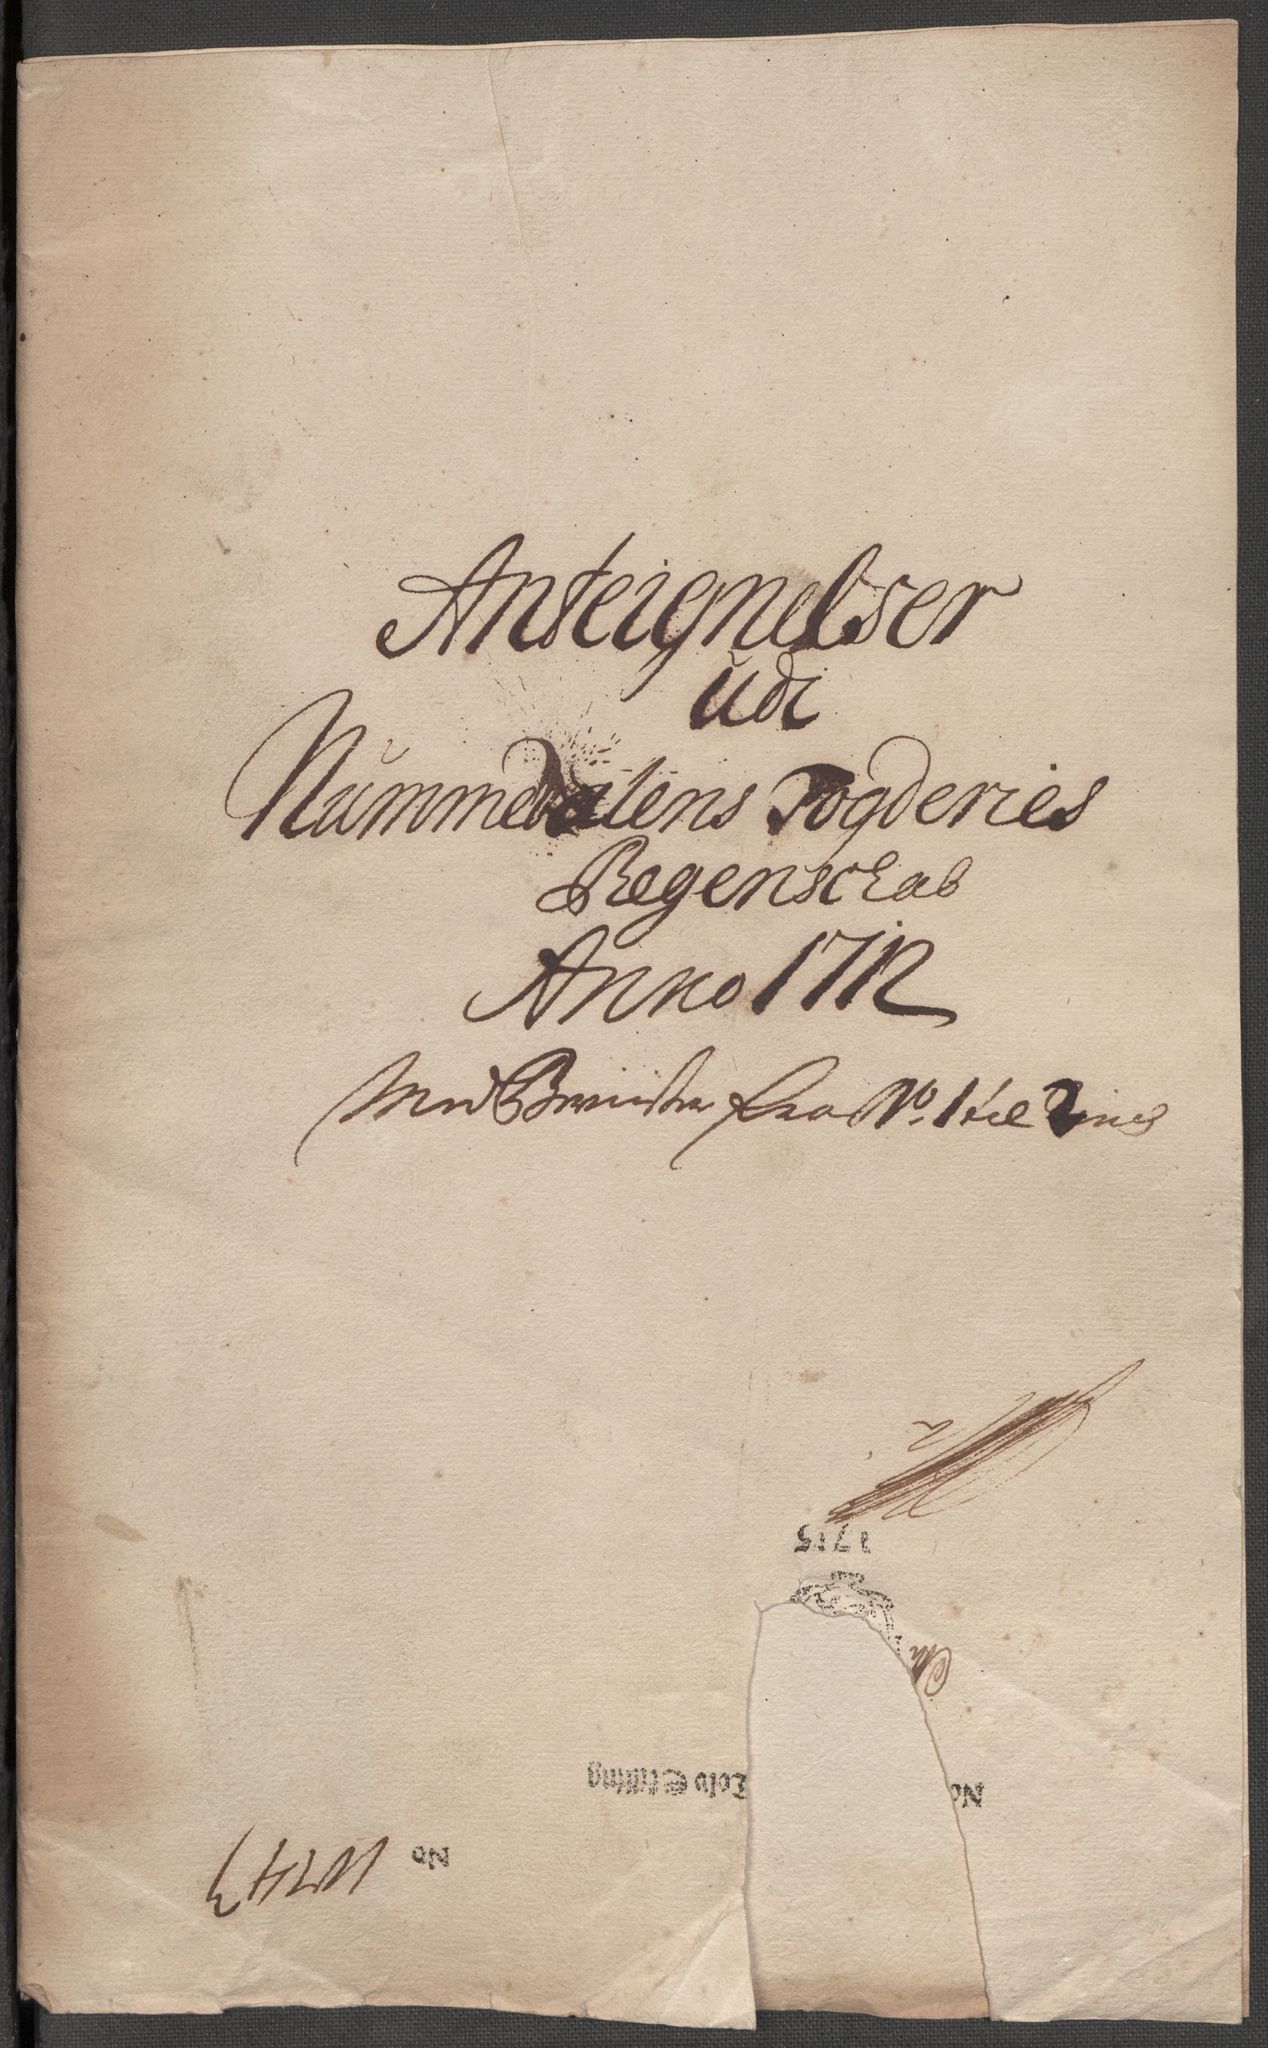 Anteignelser
udi
Nummedalens Fogderies
Regenskab
Anno 1712
Med Beviser fra No. 1 til
1715
Tolv Skilling
No
No